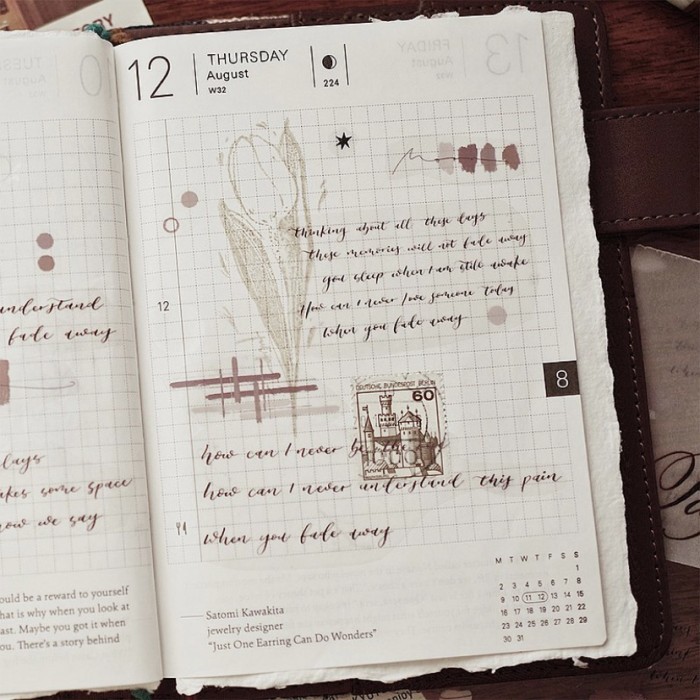 12
THURSDAY
August
W32
224
thinking about all these days
these memories will not fade away
you sleep when I am still awake
How can I never love someone today
when you fade away
12
8
DEUTSCHE BUNDESPOST BERLIN
60
how can I never be the
how can I never understand this pain
when you fade away
M T W T F S S
1
2 3 4 5 6 7 8
9 10 11 12 13 14 15
16 17 18 19 20 21 22
23 24 25 26 27 28 29
30 31
Satomi Kawakita
jewelry designer
"Just One Earring Can Do Wonders"
understand
fade away
days
akes some space
now we say
ould be a reward to yourself
hat is why when you look at
ast. Maybe you got it when
ou. There's a story behind